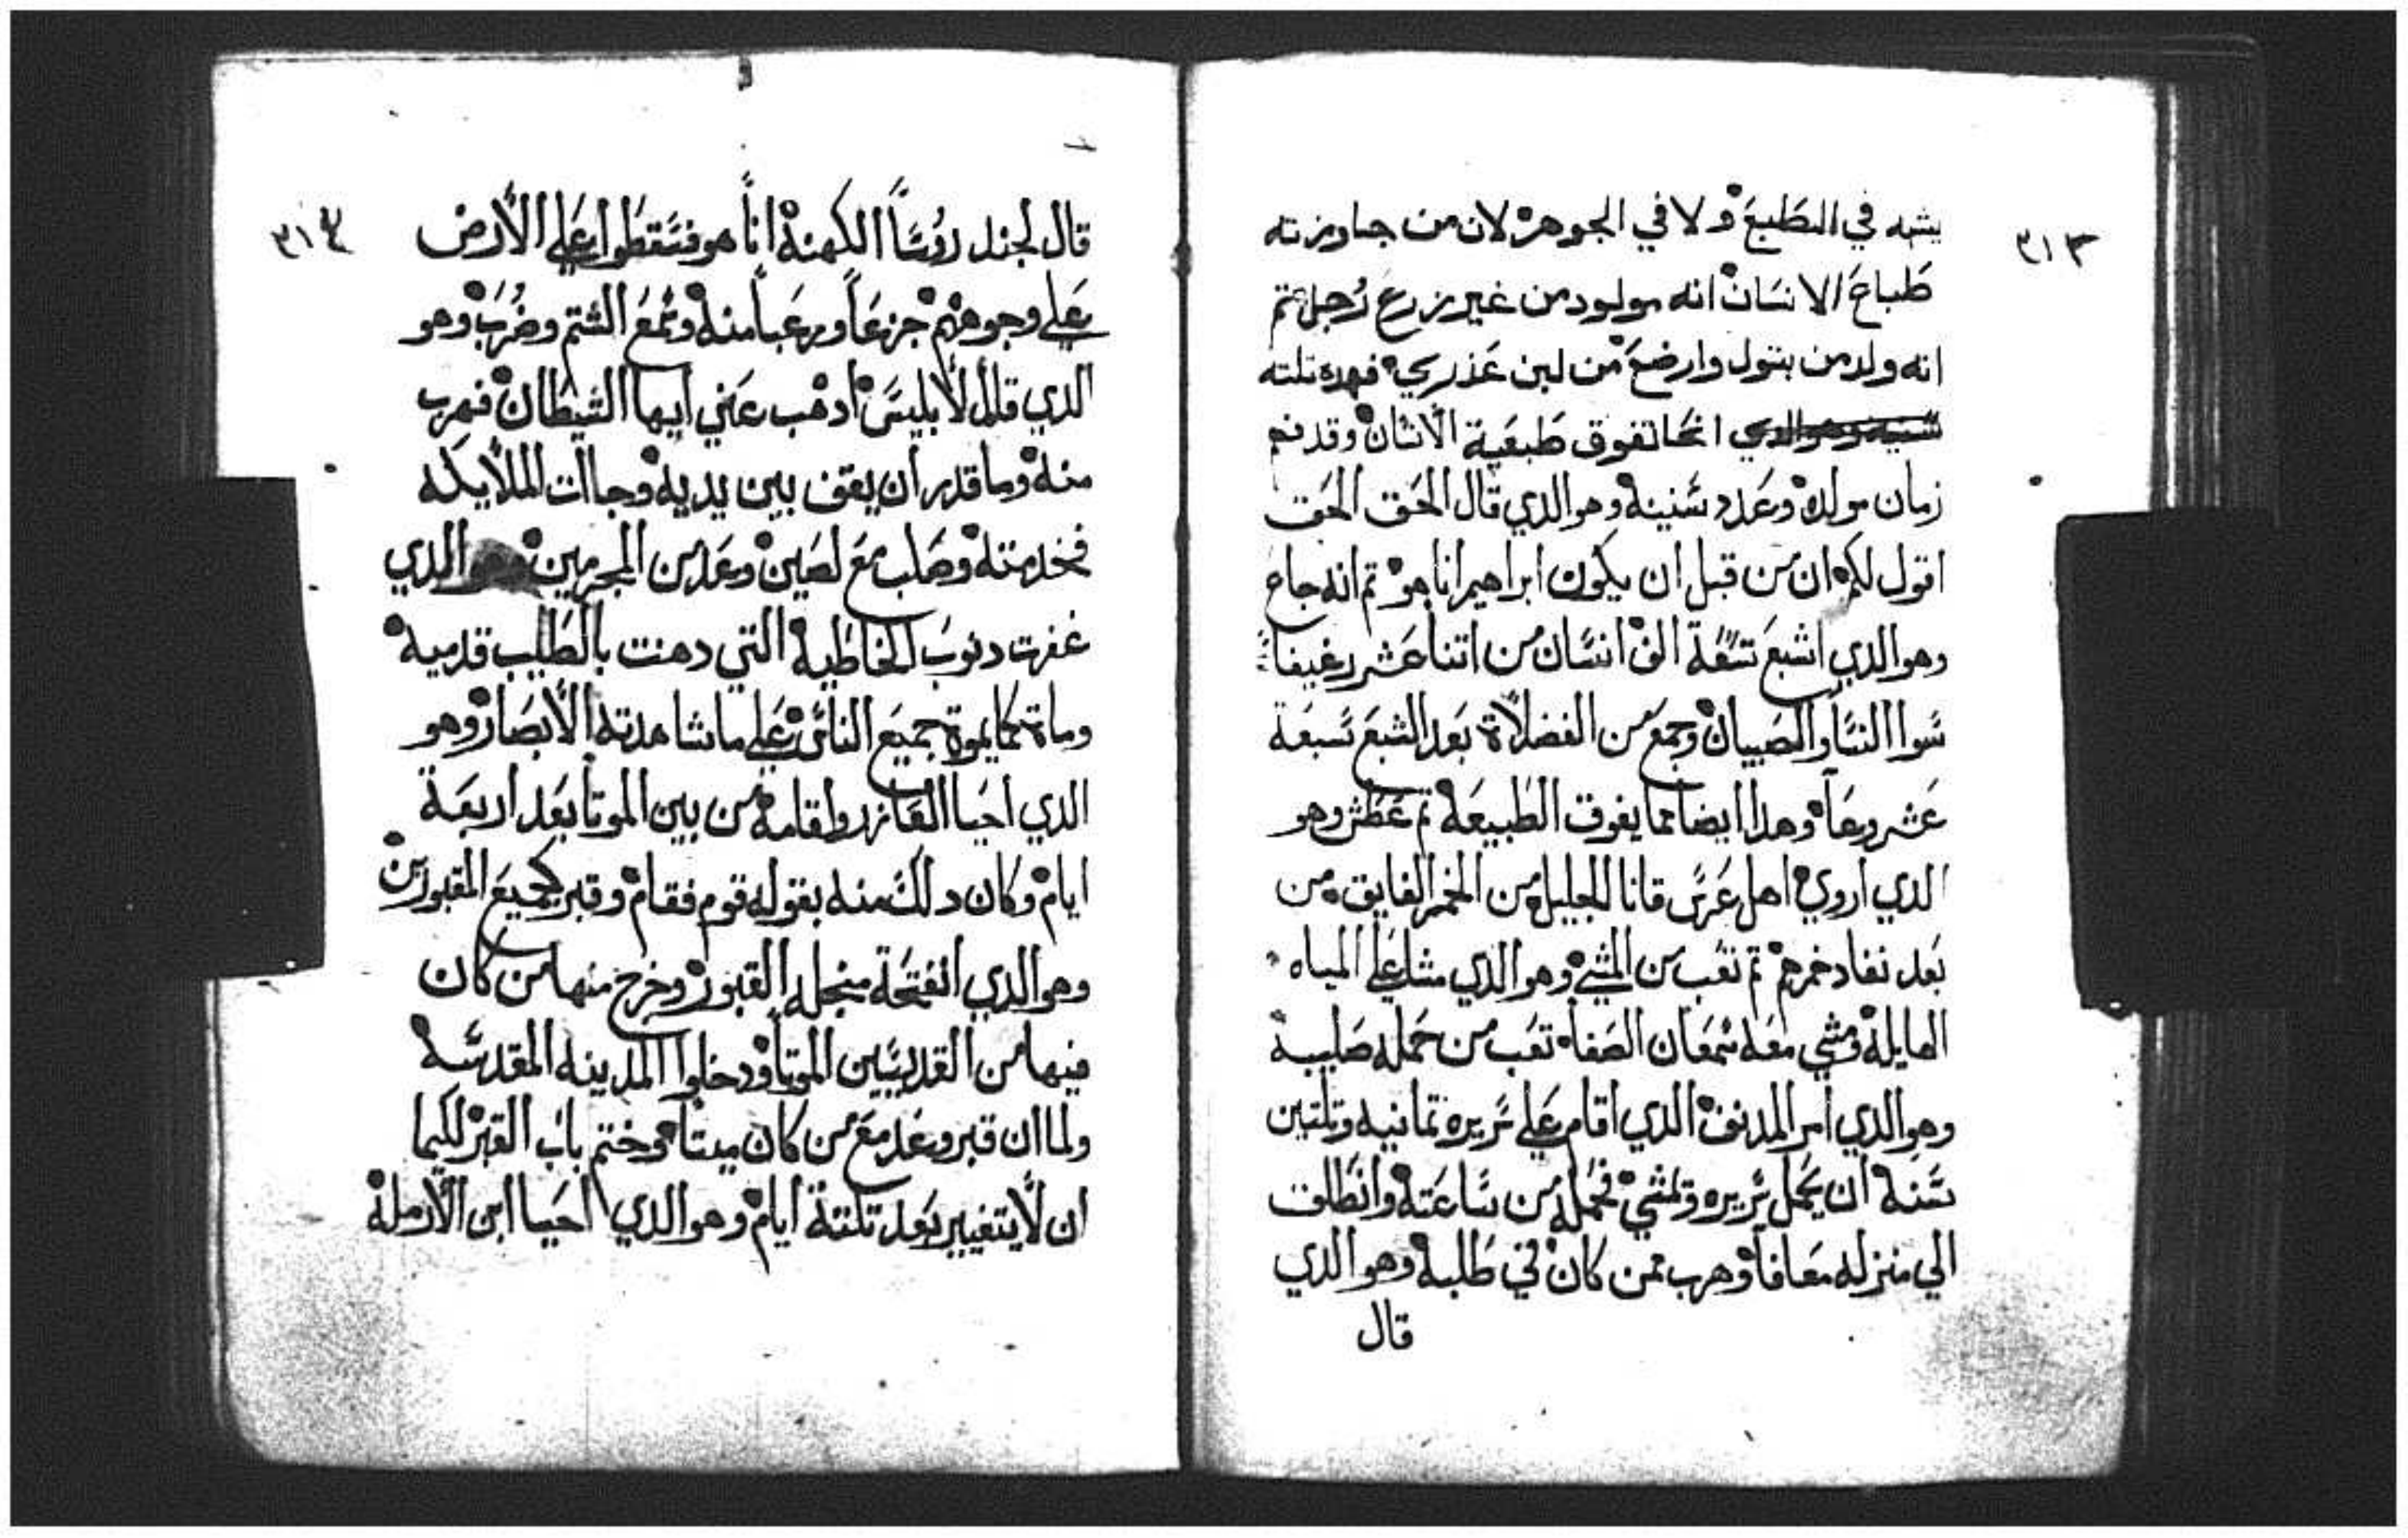 ٣١٣
يشبه في الطبع ولا في الجوهر لان من جاوزته
طباع الانسان انه مولود من غير زرع رجل تم
انه ولد من بتول وارضع من لبن عذري فهده تلته
انحا تفوق طبعية الانسان وقد فهم
زمان مولده وعدد سنينه وهو الدي قال الحق الحق
اقول لكم ان من قبل ان يكون ابراهيم انا هو تم انه جاع
وهو الدي اشبع تسعة الف انسان من اتنا عشر رغيفا
سوا النسا والصبيان وجمع من الفضلاة بعد الشبع سبعة
عشر وعا وهدا ايضا مما يفوق الطبيعة تم عطش وهو
الدي اروي اهل عرس قانا الجليل من الخمر الفايق من
بعد نفاد خمرهم تم تعب من المشي وهو الدي مشا علي المياه
الهايلة ومشي معه شمعان الصفا تعب من حمله صليبه
وهو الدي امر المدنف الدي اقام علي سريره تمانيه وتلتين
سنه ان يحمل سريره وتمشي فحمله من ساعته وانطلق
الي منزله معافا وهرب ممن كان في طلبه وهو الدي
قال
٣١٤
قال لجند روسا الكهنة انا هو فسقطوا علي الارض
علي وجوههم جزعا ورعبا منه وسمع الشتم وضرب وهو
الدي قال لابليس ادهب عني ايها الشيطان فهرب
منه وما قدر ان يقف بين يديه وجاات الملايكه
فخدمته وصلب مع لصين وعد من المجرمين وهو الدي
غفرت دنوب الخاطية التي دهنت بالطيب قدميه
وماة كما يموة جميع الناس علي ما شاهدته الابصار وهو
الدي احيا العازر واقامه من بين الموتا بعد اربعة
ايام وكان دلك منه بقوله قوم فقام وقبر كجميع المقبورين
وهو الدي انفتحة منجله القبور وخرج منها من كان
فيها من القديسين الموتا ودخلوا المدينه المقدسه
ولما ان قبر وعد مع من كان ميتا وختم باب القبر لكيما
ان لا يتغيير بعد تلتة ايام وهو الدي احيا ابن الارملة